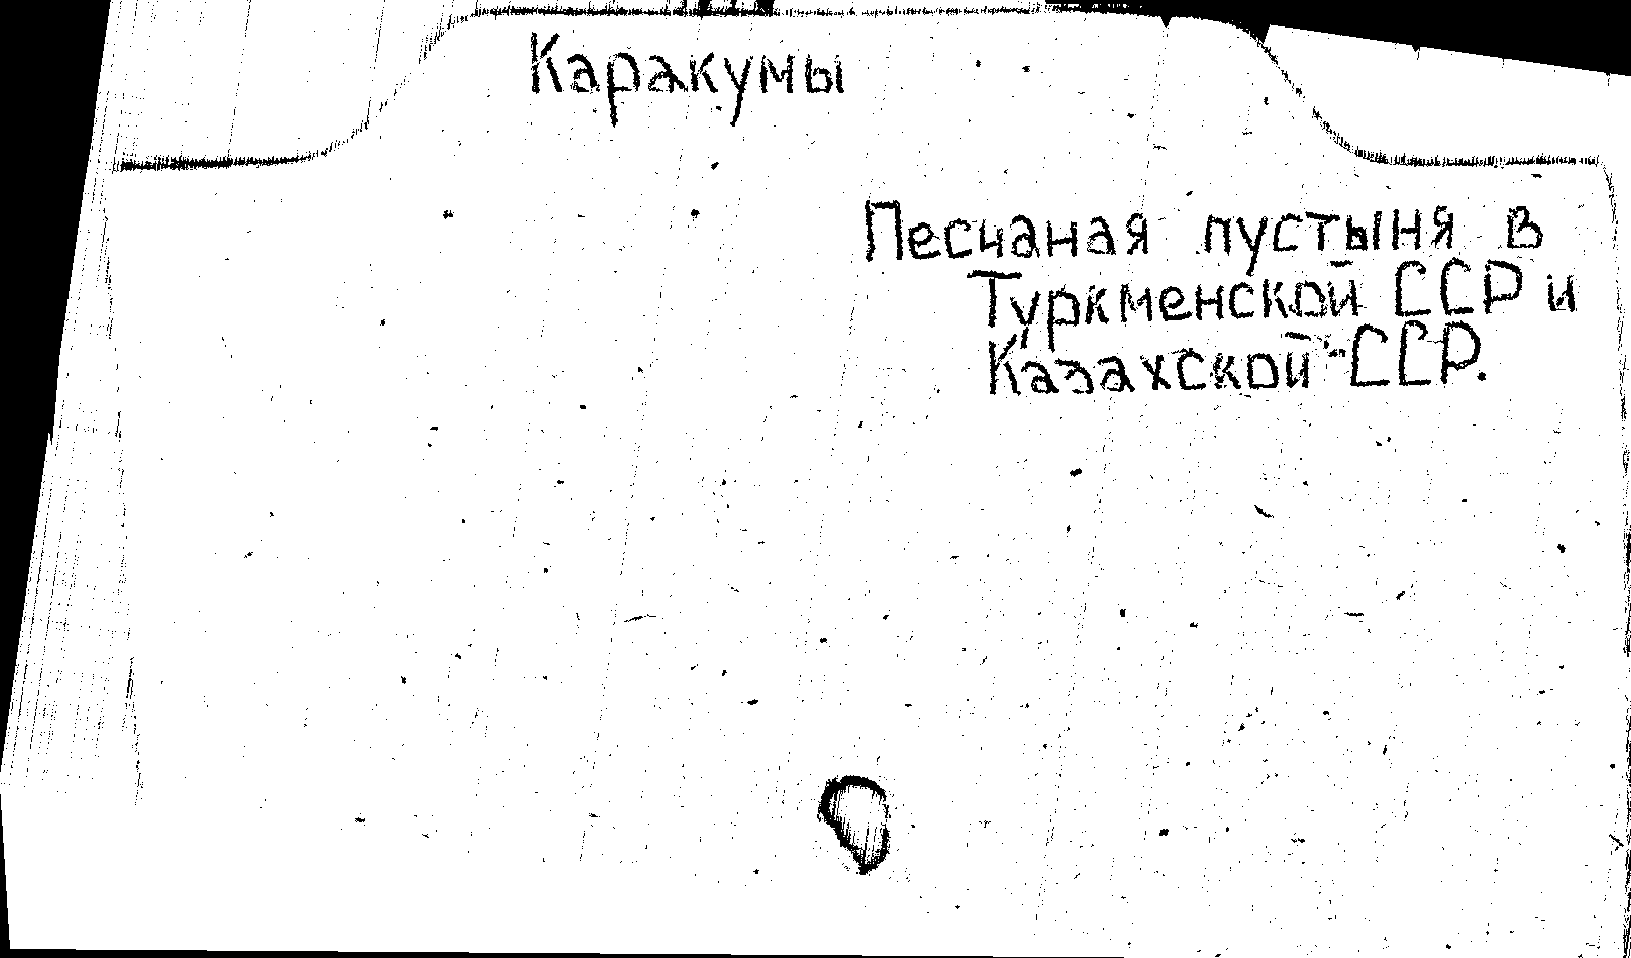 Каракумы
Песчаная пустыня в
Туркменской ССР и
Казахской ССР.